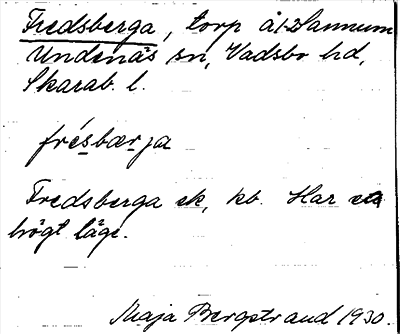 Fredsberga, torp å 1-2 Sannum
Undenäs sn, Vadsbo hd,
Skarab. l.
frésbærja
Fredsberga ek, kb. Har ett
högt läge.
Maja Bergstrand 1930.